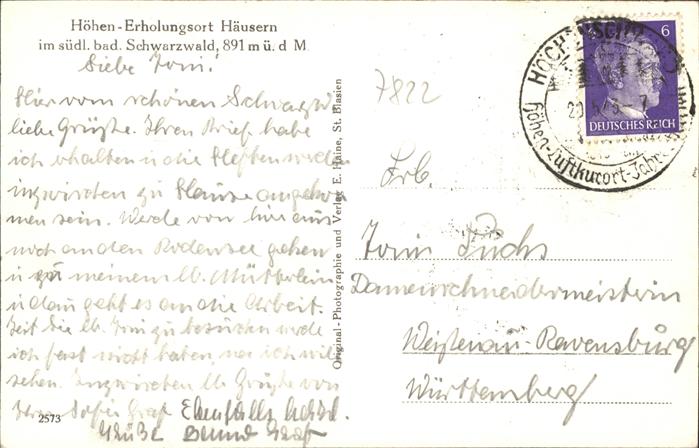 Höhen-Erholungsort Häusern
im südl. bad. Schwarzwald, 891 m ü. d M.
Liebe Toni!
Hier vom schönen Schwarzw.
liebe Grüße. Ihren Brief habe
ich erhalten u. die werden
inzwischen zu Hause angekom
men sein. Werde von hier aus
noch an den Bodensee gehen
u zu meinem lb. Mütterlein
u dann geht es an die Arbeit.
Zeit die lb. Toni zu besuchen werde
ich fast nicht haben, na ich will
sehen. Inzwischen lb Grüße von
Ihrer Sofie Graf Ebenfalls herzl.
Grüße Graf
2573
Original-Photographie und Verlag E. Haine, St. Blasien
7822
HÖCHENSCHWAND
Höhen-Luftkurort
6
DEUTSCHES REICH
Frl.
Toni Fuchs
Damenschneidermeisterin
Weißenau-Ravensburg
Württemberg